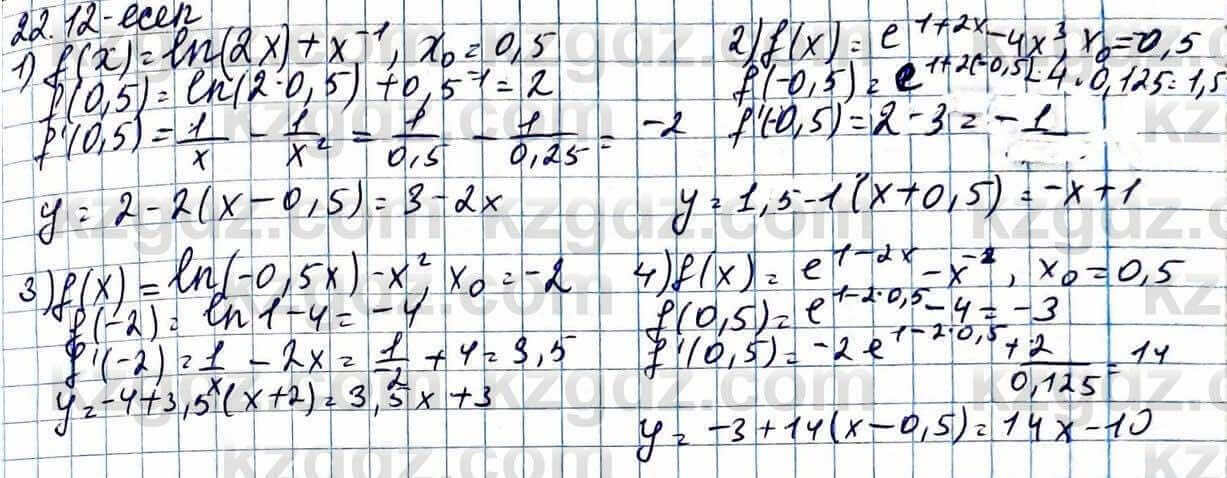 22.12-есеп
1) f(x) = ln(2x) + x⁻¹, x₀ = 0,5
f(0,5) = ln(2·0,5) + 0,5⁻¹ = 2
f'(0,5) = 1/x - 1/x² = 1/0,5 - 1/0,25 = -2
y = 2 - 2(x - 0,5) = 3 - 2x
2) f(x) = e^(1+2x) - 4x³, x₀ = -0,5
f(-0,5) = e^(1+2(-0,5)) - 4·0,125 = 1,5
f'(-0,5) = 2 - 3 = -1
y = 1,5 - 1(x + 0,5) = -x + 1
3) f(x) = ln(-0,5x) - x², x₀ = -2
f(-2) = ln 1 - 4 = -4
f'(-2) = 1/x - 2x = 1/2 + 4 = 3,5
y = -4 + 3,5(x + 2) = 3,5x + 3
4) f(x) = e^(1-2x) - x⁻², x₀ = 0,5
f(0,5) = e^(1-2·0,5) - 4 = -3
f'(0,5) = -2e^(1-2·0,5) + 2/0,125 = 14
y = -3 + 14(x - 0,5) = 14x - 10
kzgdz.com